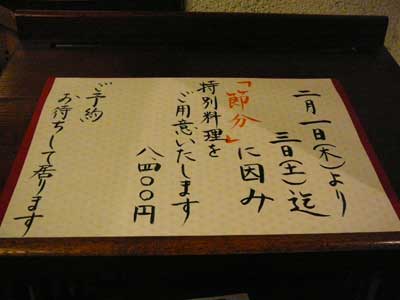 二月一日(木)より
三日(土)迄
「節分」に因み
特別料理を
ご用意いたします
八四〇〇円
ご予約
お待ちして居ります